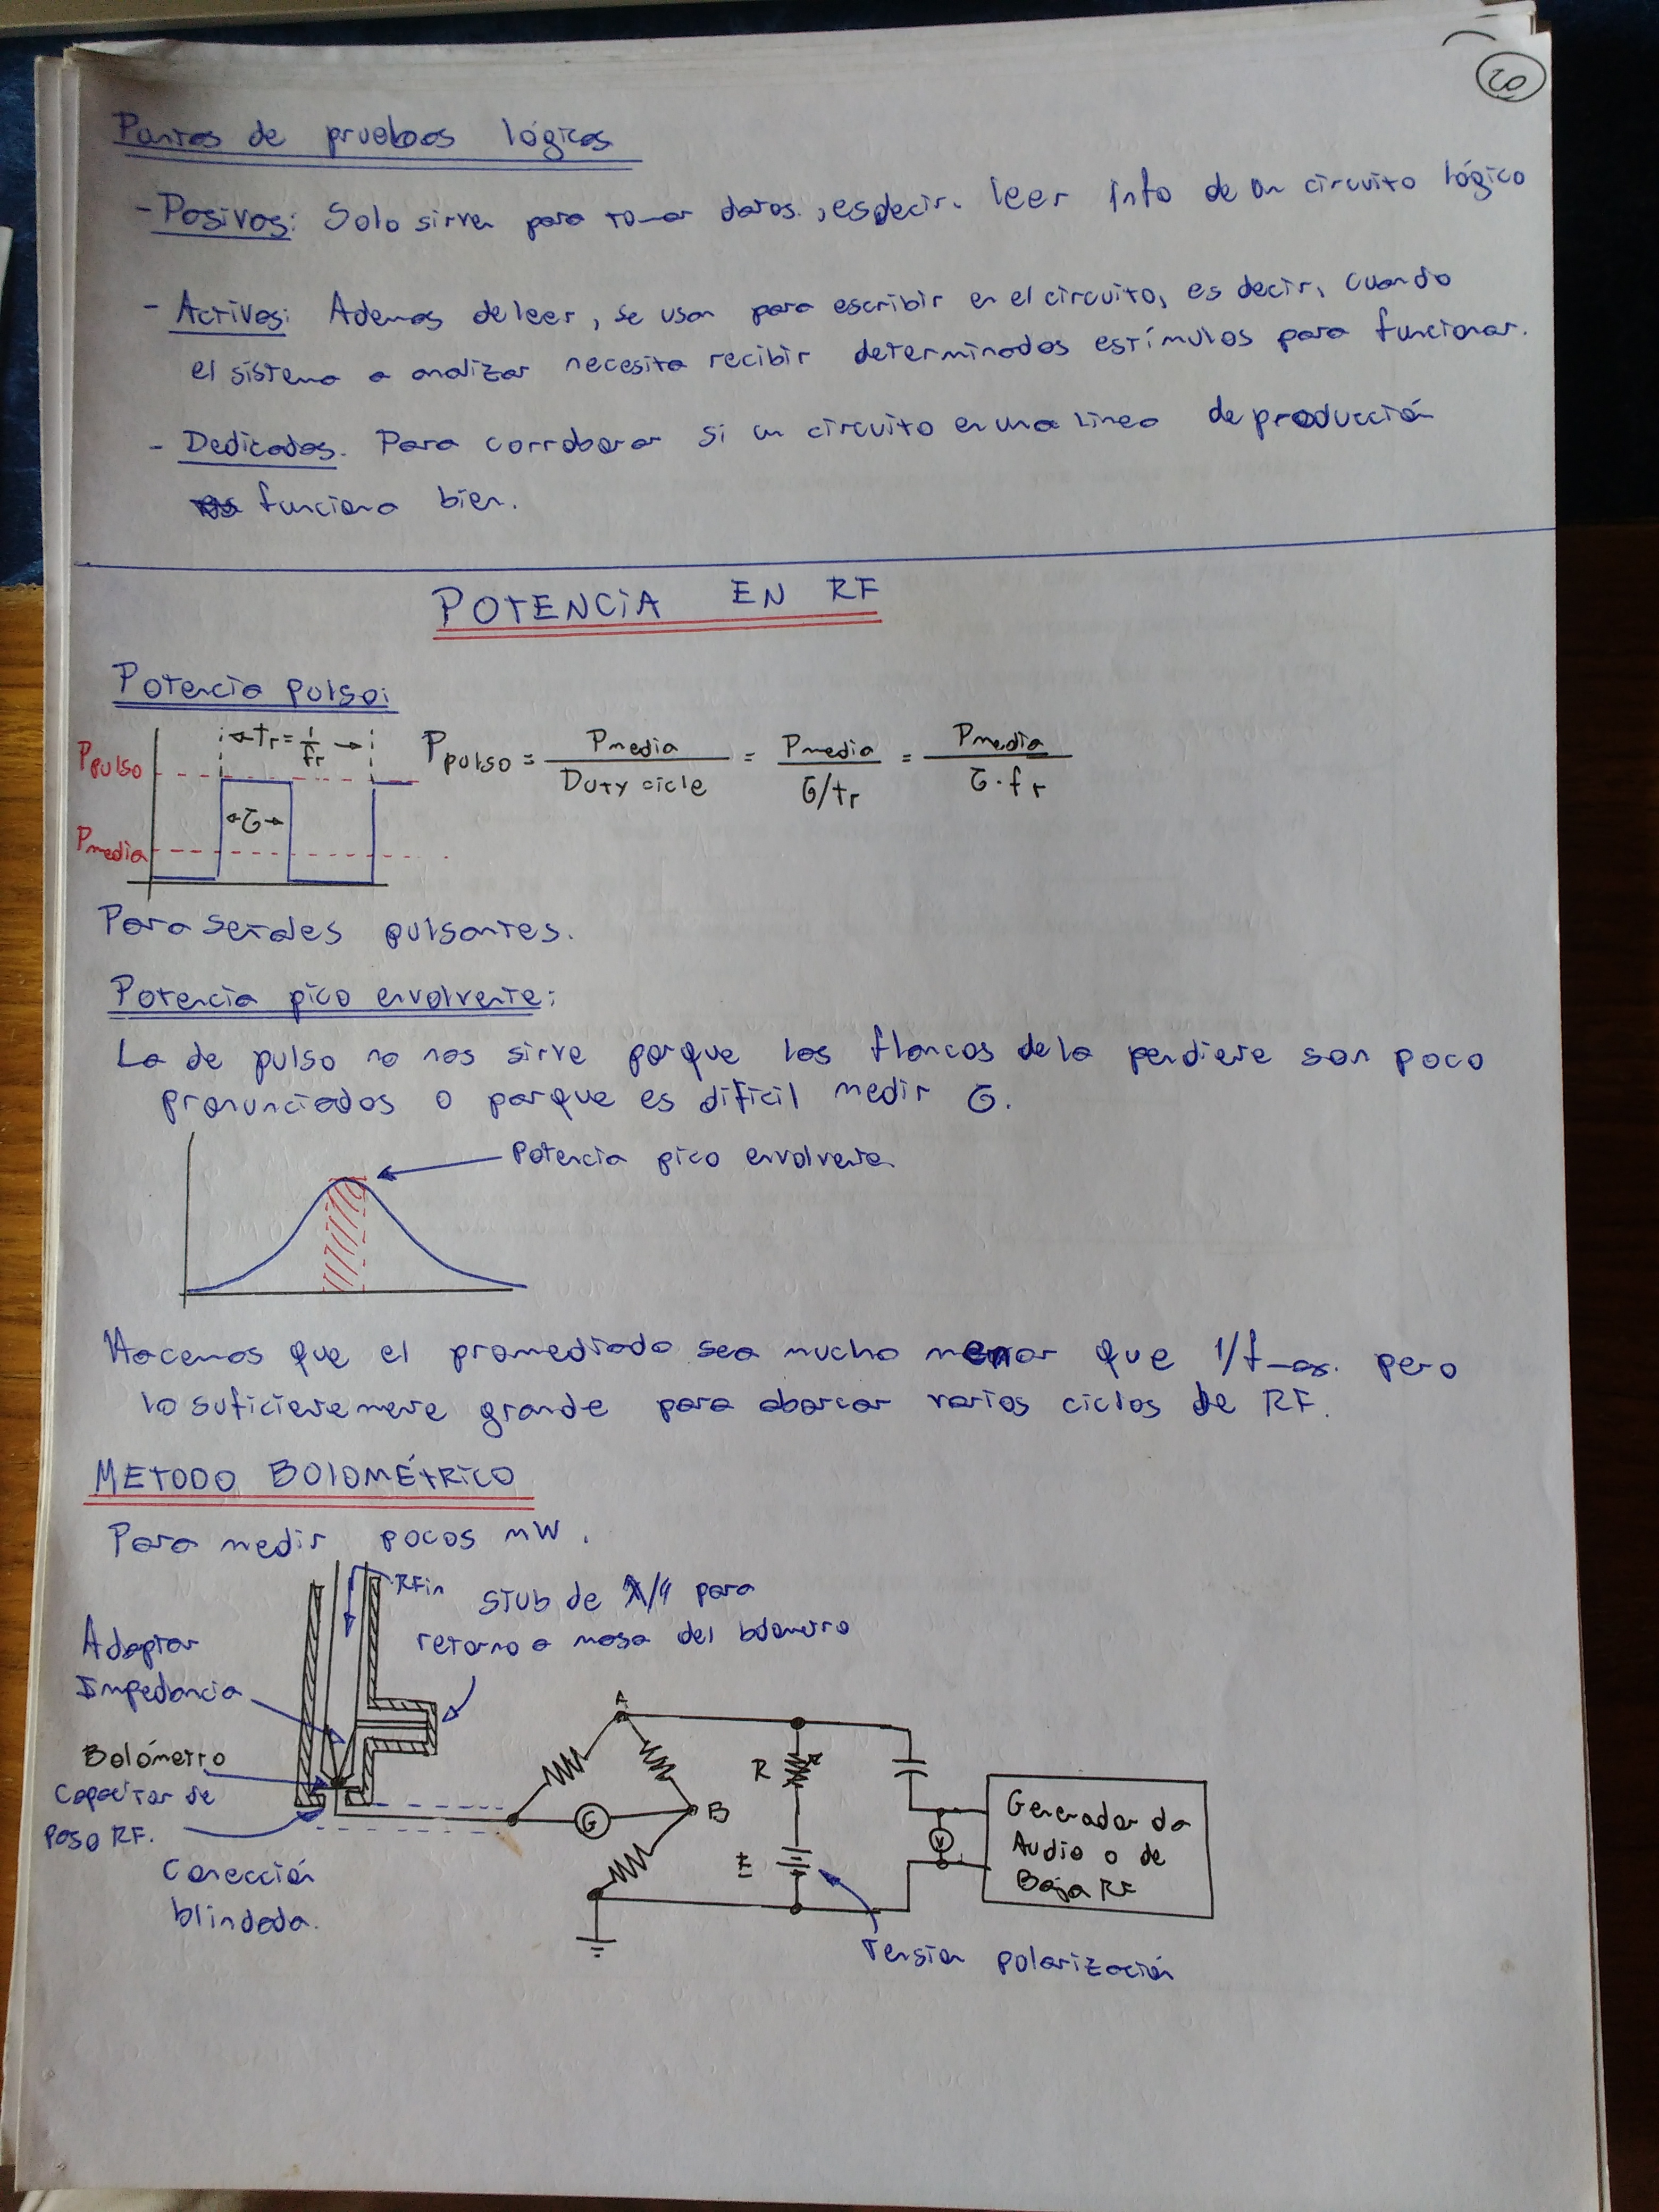 20
Puntas de pruebas lógicas
- Pasivas: Solo sirven para tomar datos, es decir. leer info de un circuito lógico
- Activas: Ademas de leer, se usan para escribir en el circuito, es decir, cuando
el sistema a analizar necesita recibir determinados estímulos para funcionar.
- Dedicadas. Para corroborar si un circuito en una linea de producción
funciona bien.
POTENCIA EN RF
Potencia pulso:
tr = 1/fr
P pulso
P media
τ
P pulso = P media / Duty cicle = P media / τ/tr = P media / τ·fr
Para señales pulsantes.
Potencia pico envolvente:
La de pulso no nos sirve porque los flancos de la pendiente son poco
pronunciados o porque es difícil medir τ.
Potencia pico envolvente
Hacemos que el promediado sea mucho menor que 1/fmax. pero
lo suficientemente grande para abarcar varios ciclos de RF.
METODO BOLOMÉTRICO
Para medir pocos mW.
RFin
Stub de λ/4 para
retorno a masa del bolómetro
Adaptar
Impedancia
Bolómetro
Capacitor de
Paso RF.
Conección
blindada.
A
B
G
R
E
V
Generador de
Audio o de
Baja RF
Tensión polarización